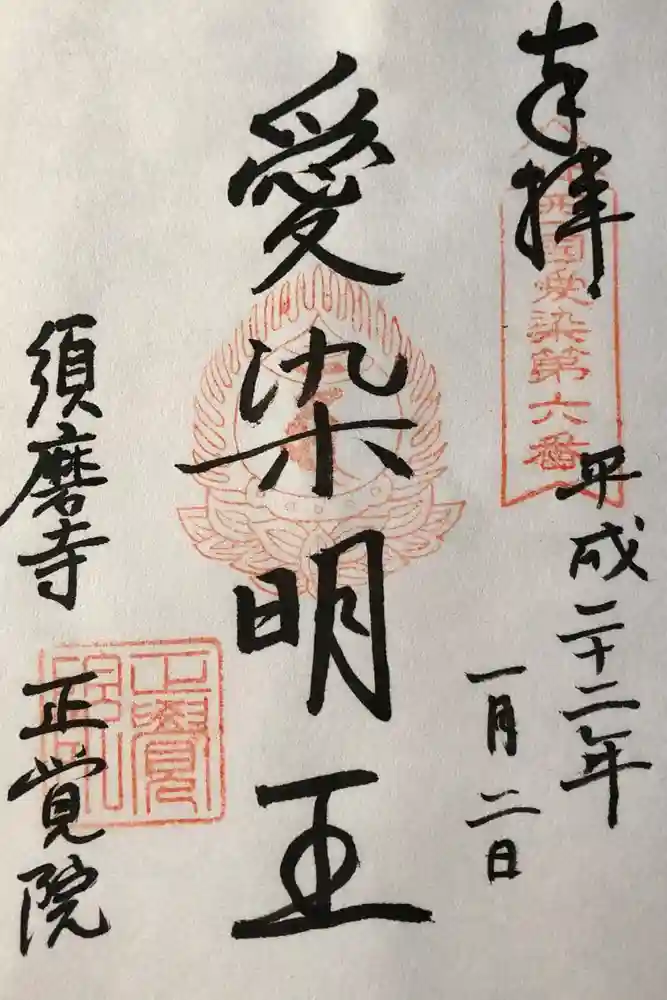 奉拝
西国愛染第六番
平成二十二年
一月二日
愛染明王
須磨寺 正覚院
正覺院印